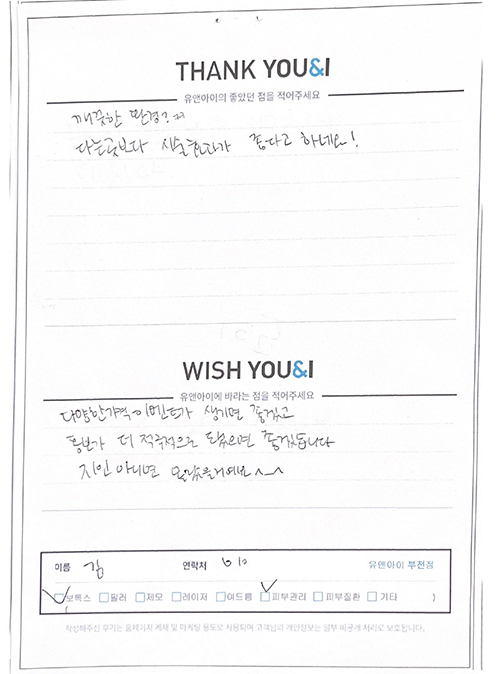 THANK YOU&I
유앤아이의 좋았던 점을 적어주세요
깨끗한 환경?과
다른곳보다 시술효과가 좋다고 하네요!
WISH YOU&I
유앤아이에 바라는 점을 적어주세요
다양한가격이벤트가 생기면 좋겠고
홍보가 더 적극적으로 됐으면 좋겠습니다
지인 아니면 몰랐을거예요^-^
이름 김 연락처 010 유앤아이 부천점
보톡스 필러 제모 레이저 여드름 피부관리 피부질환 기타 )
작성해주신 후기는 홈페이지 게재 및 마케팅 용도로 사용되며 고객님의 개인정보는 일부 비공개 처리로 보호됩니다.